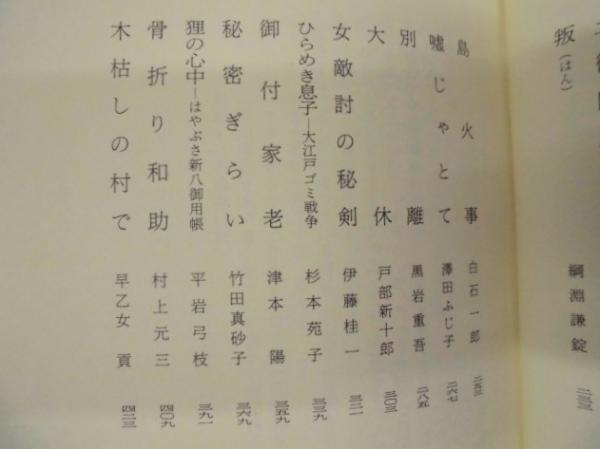 叛(はん) 綱淵謙錠 二三三
島火事 白石一郎 二五三
嘘じゃとて 澤田ふじ子 二六七
別離 黒岩重吾 二八五
大休 戸部新十郎 三〇三
女敵討の秘剣 伊藤桂一 三二一
ひらめき息子―大江戸ゴミ戦争 杉本苑子 三三九
御付家老 津本陽 三五九
秘密ぎらい 竹田真砂子 三六九
狸の心中―はやぶさ新八御用帳 平岩弓枝 三九一
骨折り和助 村上元三 四〇九
木枯しの村で 早乙女貢 四二三